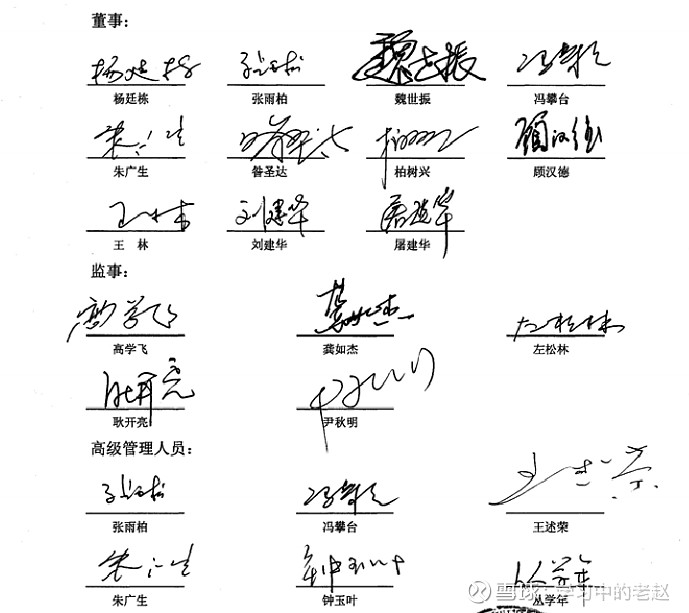 董事：
杨廷栋 张雨柏 魏世振 冯攀台
朱广生 昝圣达 柏树兴 顾汉德
王 林 刘建华 屠建华
监事：
高学飞 龚如杰 左松林
耿开亮 尹秋明
高级管理人员：
张雨柏 冯攀台 王述荣
朱广生 钟玉叶 丛学年
雪球：学习中的老赵